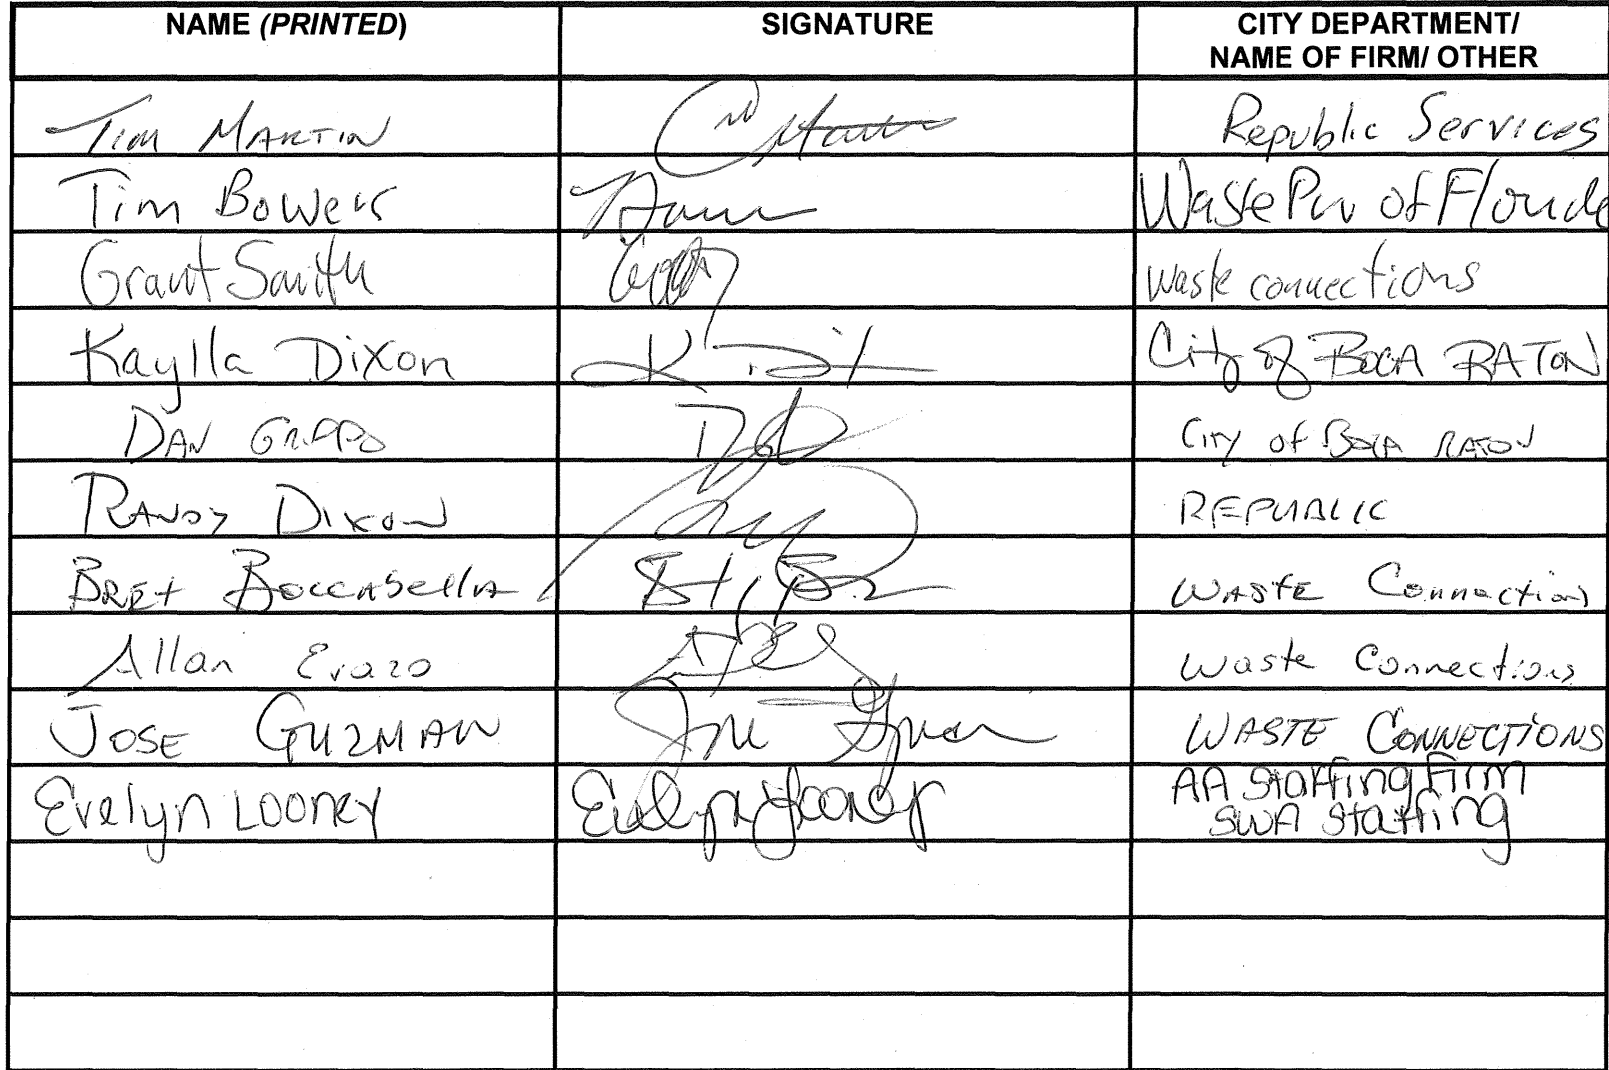 NAME (PRINTED) SIGNATURE CITY DEPARTMENT/
NAME OF FIRM/ OTHER
Tim MARTIN Republic Services
Tim Bowers Waste Pro of Florida
Grant Smith Waste connections
Kaylla Dixon K Dix City of BOCA RATON
DAN GRIPPO City of BOCA RATON
RANDY DIXON REPUBLIC
BRET BoccAbellA WASTE Connections
Allan Erazo Waste Connections
JOSE GUZMAN WASTE CONNECTIONS
Evelyn Looney Evelyn Looney AA Staffing Firm
SWA Staffing